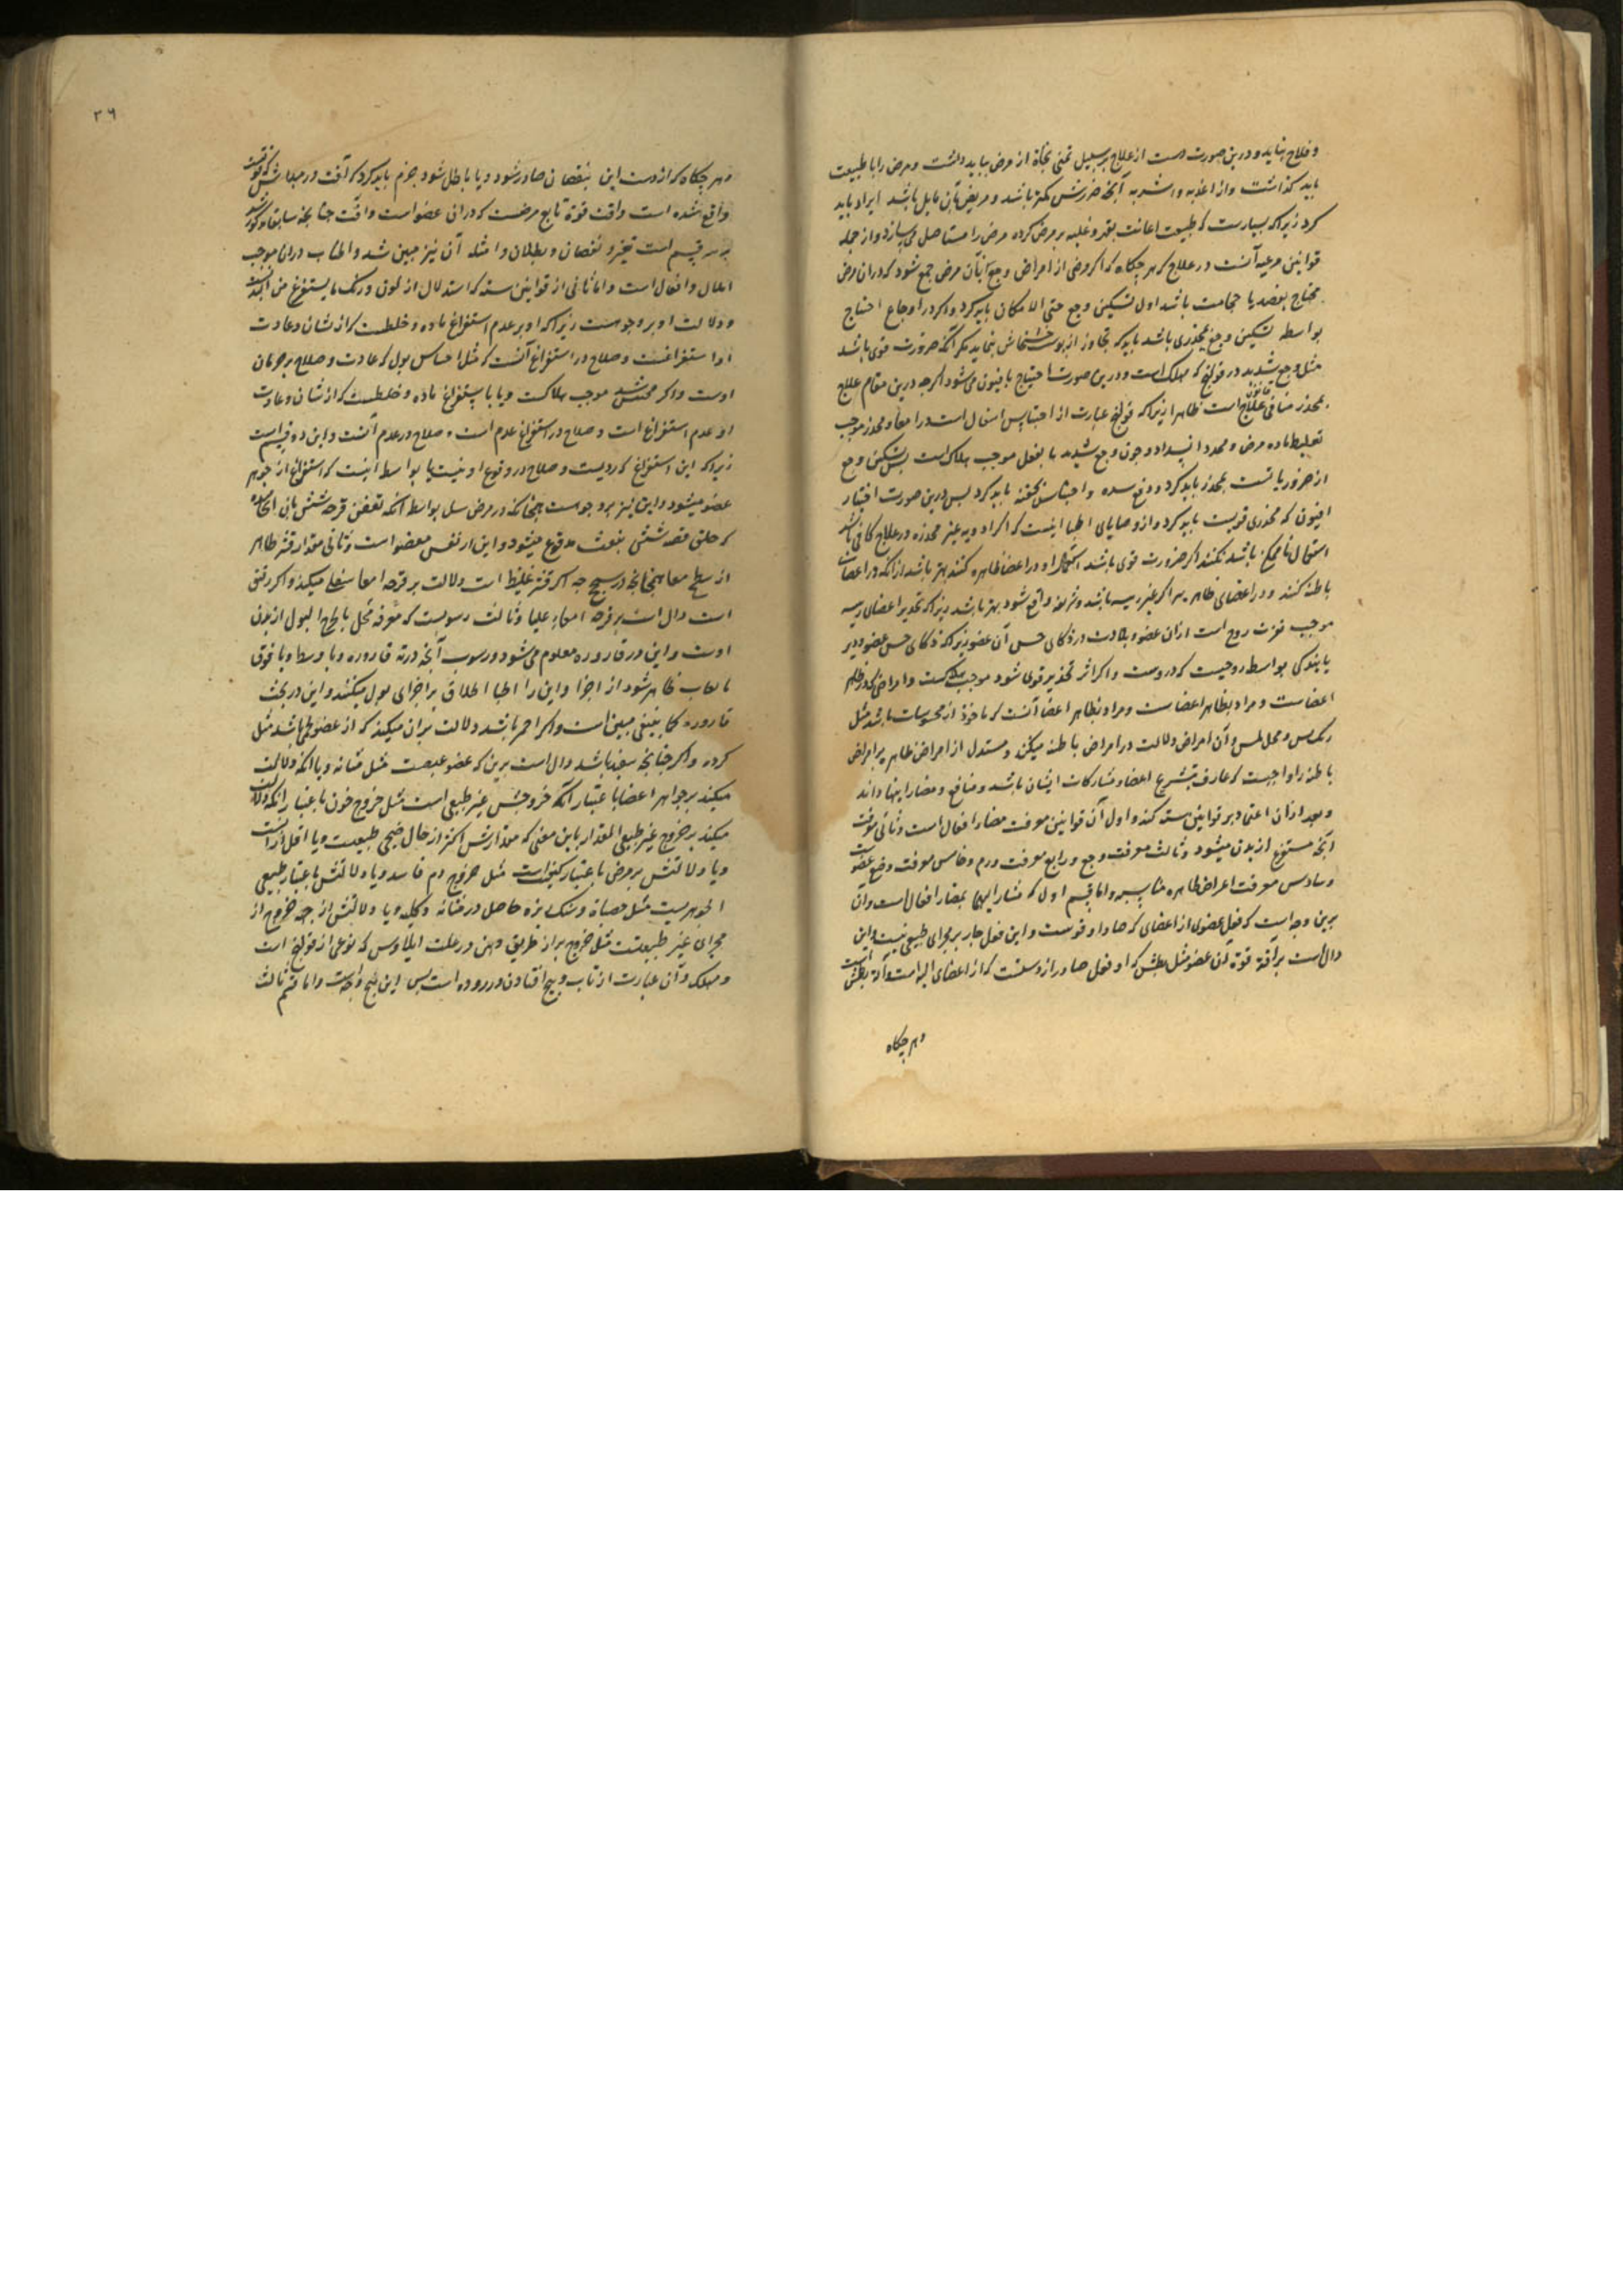 و فلاح نیاید و درین صورت دست از علاج بر سبیل تمنی نجاة از مرض بباید داشت و مرض را با طبیعت
باید گذاشت و از اغذیه و اشربه آنچه ضررش کمتر باشد و مریض بآن مایل باشد ایراد باید
کرد زیراکه بسیارست که طبیعت اعانت بقهر و غلبه بر مرض کرده مرض را مستاصل می‌سازد و از جمله
قوانین مرعیه آنست در علاج که هر چگاه که اگر مرضی از امراض وجع با آن مرض جمع شود که در آن مرض
محتاج بفصد یا حجامت باشد اول تسکین وجع حتی الامکان باید کرد و اگر در اوجاع احتیاج
بواسطه تسکین وجع بمخدری باشد باید که تجاوز از پوست خشخاش ننماید مکر آنکه ضرورت قوی باشد
مثل وجع شدید در قولنج که مهلک است و درین صورت احتیاج بافیون می‌شود اگرچه درین مقام علاج
بمخدر منافی قانون علاج است ظاهرا زیراکه قولنج عبارت از احتباس اثفال است در امعا و مخدر موجب
تغلیظ ماده مرض و ممدد انسداد و چون وجع شدید بالفعل موجب هلاک است پس تسکین وجع
از ضروریاتست بمخدر باید کرد و دفع سده و احتباس بحقنه باید کرد پس درین صورت اختیار
افیون که مخدری قویست باید کرد و از وصایای اطبا اینست که اکر ادویه غیر مخدره در علاج کافی باشد
استعمال تا ممکن باشد نکنند اگر ضرورت قوی باشد استعمال او در اعضا ظاهره کنند بهتر باشد از آنکه در اعضا
باطنه کنند و در اعضای ظاهریه اگر غیر رییسه باشد و شریفه واقع شود بهتر باشد زیراکه تخدیر اعضای رییسه
موجب نفرت روح است از آن عضو و بلادت در ذکای حس آن عضو زیراکه ذکای حس عضو و دیر
پایندگی بواسطه روحیست که دروست و اگر اثر تخدیر قوی شود موجب هلاکست و امراضی که در ظاهر
اعضاست و مراد بظاهر اعضاست و مراد بظاهر اعضا آنست که ماخوذ از محسوسات باشد مثل
رنگ و محل لمس و آن امراض دلالت در امراض باطنه میکند و مستدل از امراض ظاهره بر امراض
باطنه را واجبست که عارف بتشریح اعضا و مشارکات ایشان باشد و منافع و مضار اینها داند
و بعد از آن اعتماد بر قوانین سته کند و اول آن قوانین معرفت مضار افعال است و ثانی معرفت
آنچه مستفرغ از بدن میشود و ثالث معرفت وجع و رابع معرفت ورم و خامس معرفت وضع عضوست
و سادس معرفت اعراض ظاهره مناسبه و اما قسم اول که مشار الیها بمضار افعال است و آن
برین وجه است که فعل عضوی از اعضای که صادر از قوتست و این فعل جار بر مجرای طبیعی نیست و این
دالست بر آفة قوة آن عضو مثل بطش که او فعل صادر از دستست که از اعضای آلیه است و آلة بطش است
و هر چگاه
۳۶
و هر چگاه که از دست این بنقصان صادر شود و یا باطل شود جزم باید کرد که آفت در مبداش که قوتست
واقع شده است و آفت قوة تابع مرضست که در آن عضو است و آفت چنانچه سابقا مذکور شد
بر سه قسم است تغیر و نقصان و بطلان و امثله آن نیز مبین شد و اطناب در آن موجب
املال و انفعال است و اما ثانی از قوانین سته که استدلال از لون و رنگ ما یستفرغ من البدنست
و دلالت او بر وجوهست زیراکه او بر عدم استفراغ ماده و خلطست که از شان و عادت
او استفراغست و صلاح در استفراغ آنست که مثل احتباس بول که عادت و صلاح بر جریان
اوست و اگر محتبس شد موجب هلاکست و یا باستفراغ ماده و خلطست که از شان و عادت
او عدم استفراغ است و صلاح در استفراغ عدم است و صلاح در عدم آنست و این دو قسم است
زیراکه این استفراغ که ردیست و صلاح در وقوع او نیست یا بواسطه اینست که استفراغ از جوهر
عضو میشود و این نیز بر وجوهست همچنانکه در مرض سل بواسطه آنکه تعفن قرحه شش بآن انجامیده
که حلق قصبه شش بنفث مدفوع میشود و این از نفس عضو است و ثانی مقدار قشر ظاهر
از سطح معا همچنانچه در سحج چه اگر قشر غلیظ است دلالت بر قرحه امعا سفلی میکند و اگر رقیق
است دال است بر قرحه امعاء علیا و ثالث رسوبست که معرف محل یا لمج البول از بدن
اوست و این در قاروره معلوم می‌شود و رسوب آنچه در ته قاروره و یا وسط و یا فوق
یا لعاب ظاهر شود از اجزا و این را اطبا اطلاق بر اجزای بول میکنند و این در بحث
قاروره کما ینبغی مبین است و اگر احمر باشد دلالت بر آن میکند که از عضو لحمی باشد مثل
کرده و اگر چنانچه سفید باشد دال است برین که عضو عصبست مثل مثانه و یا آنکه دلالت
میکند بر جواهر اعضا باعتبار آنکه خروجش غیر طبیعی است مثل خروج خون باعتبار آنکه دلالت
میکند بر خروج غیر طبیعی المقدار باین معنی که مقدارش اکثر از حال صحی طبیعیست و یا اقل از آنست
و یا دلالتش بر مرض باعتبار کیفیت است مثل خروج دم فاسد و یا دلالتش باعتبار طبیعی
الجوهریست مثل حصاة و سنک ریزه حاصل در مثانه و کلیه و یا دلالتش از جهة خروج از
مجرای غیر طبیعتست مثل خروج براز از طریق دهن در علت ایلاوس که نوعی از قولنج است
و مهلک و آن عبارت از تاب و پیچ افتادن در روده است پس این پنج وجهست و اما قسم ثالث